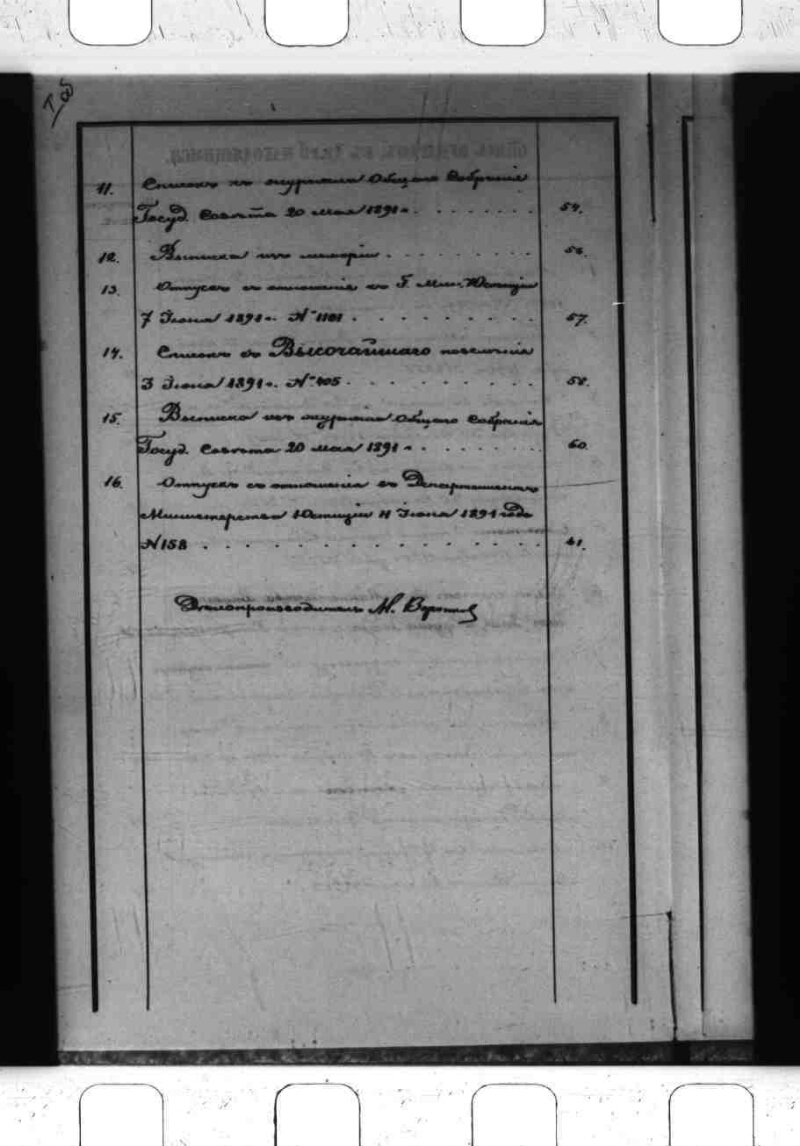 11. Списокъ съ журнала Общаго Собранія
Госуд. Совѣта 20 мая 1891 г. 54.
12. Выписка изъ меморіи 56.
13. Отпускъ съ отношенія къ Г. Мин. Юстиціи
7 Іюня 1891 г. № 1101 57.
14. Списокъ съ Высочайшаго повелѣнія
3 Іюня 1891 г. № 405 58.
15. Выписка изъ журнала Общаго Собранія
Госуд. Совѣта 20 мая 1891 г. 60.
16. Отпускъ съ отношенія въ Департаментъ
Министерства Юстиціи 11 Іюня 1891 года
№ 158 61.
Дѣлопроизводитель